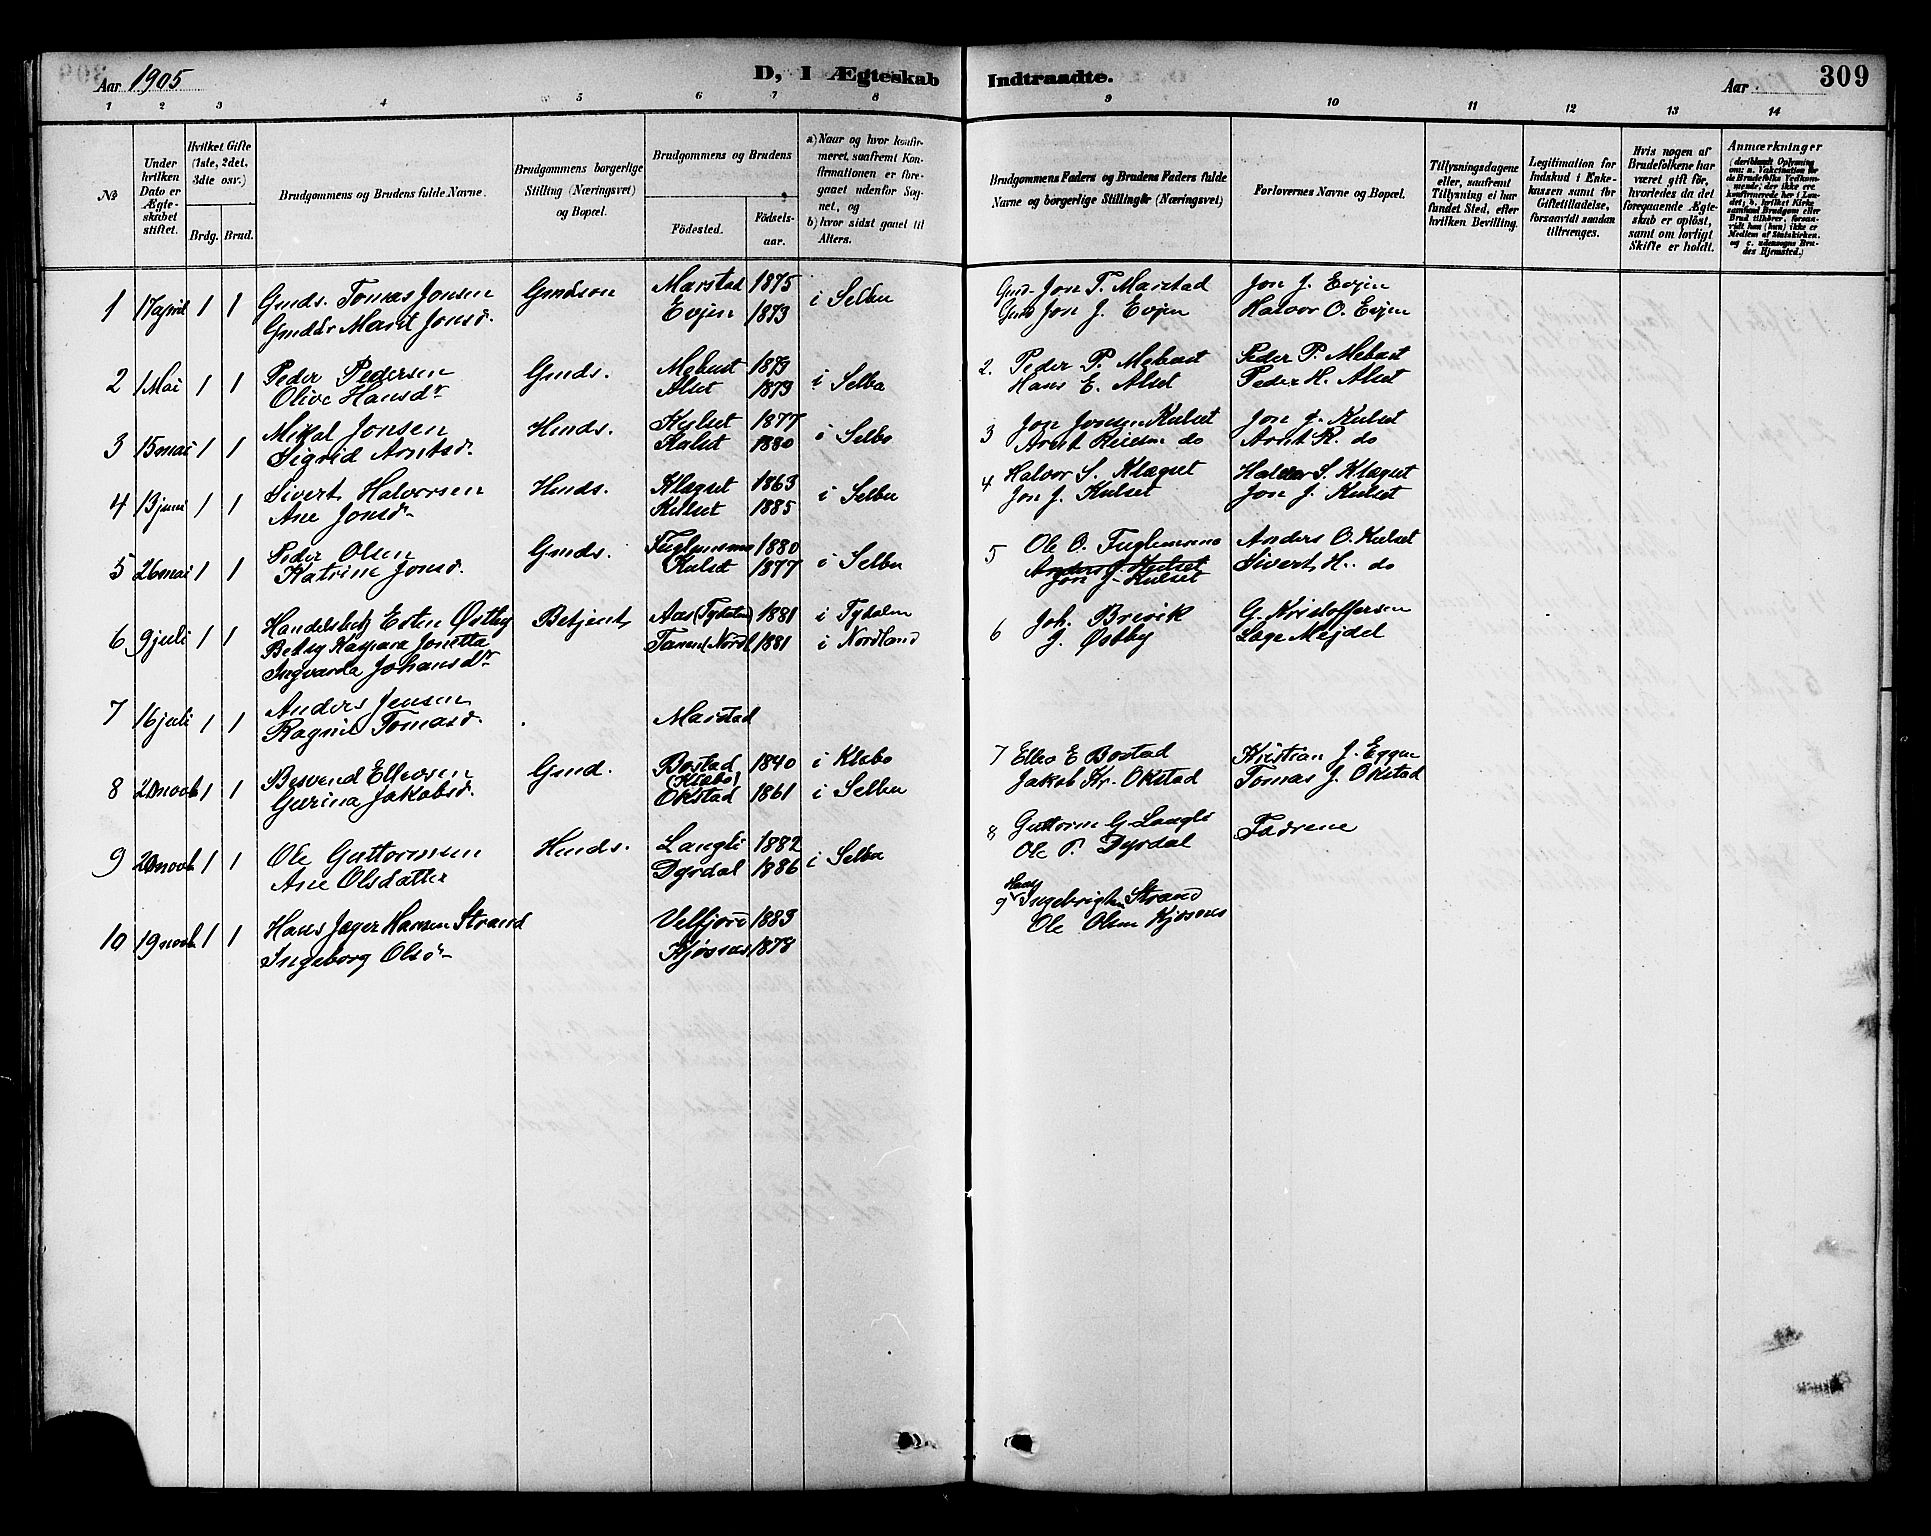 Aar 1905
D, I Ægteskab Indtraadte.
Aar
309
1 2 3 4 5 6 7 8 9 10 11 12 13 14
№
Under hvilken Dato er Ægteskabet stiftet.
Hvilket Gifte (1ste, 2det, 3die osv.)
Brdg. Brud.
Brudgommens og Brudens fulde Navne.
Brudgommens borgerlige Stilling (Næringsvei) og Bopæl.
Brudgommens og Brudens
Födested. Födselsaar.
a) Naar og hvor konfirmeret, saafremt Konfirmationen er foregaaet udenfor Sognet, og
b) hvor sidst gaaet til Alters.
Brudgommens Faders og Brudens Faders fulde Navne og borgerlige Stilling (Næringsvei)
Forlovernes Navne og Bopæl.
Tillysningsdagene eller, saafremt Tillysning ei har fundet Sted, efter hvilken Bevilling.
Legitimation for Indskud i Enkekassen samt for Giftetilladelse, forsaavidt saadan tiltrænges.
Hvis nogen af Brudefolkene har været gift för, hvorledes da det foregaaende Ægteskab er oplöst, samt om lovligt Skifte er holdt.
Anmærkninger
1 17 april 1 1 Gmds. Tomas Jonsen Gmdson Marstad 1875 i Selbu Gmd. Jon T. Marstad Jon J. Evjen
Gmdår Marit Jonsd. Evjen 1873 Gmd Jon J. Evjen Halvor O. Evjen
2 1 Mai 1 1 Peder Pedersen Gmds. Mebust 1879 i Selbu 2. Peder P. Mebust Peder P. Mebust
Olive Hansdr Alset 1879 Hans E. Alset Peder H. Alset
3 15 mai 1 1 Mikal Jonsen Hmds. Kulset 1877 i Selbo 3 Jon Jonsen Kulset Jon J. Kulset
Sigrid Arntsd. Kulset 1880 Arnt do Arnt R. do
4 13 juni 1 1 Sivert Halvorsen Hmds. Klegset 1863 i Selbu 4 Halvor S. Klegset Haldor S. Klegset
Ane Jonsd. Kulset 1885 Jon J. Kulset Jon J. Kulset
5 26 mai 1 1 Peder Olsen Gmds. Fuglemsmo 1880 i Selbu 5 Ole O. Fuglemsmo Anders O. Kulset
Katrine Jonsd. Kulset 1877 Anders J. Kulset Sivert H. do
Jon J. Kulset
6 9 juli 1 1 Handelsbetj Esten Østby Betjent Aas (Tydalen) 1881 i Tydalen 6 Joh. Brevik G. Kristoffersen
Betsy Kaspara Jonetta (Nordl 1881 i Nordland J. Østby Lage Mejdel
Ingvarda Johansdr
7 16 juli 1 1 Anders Jensen
Ragnil Tomasd. Marstad
8 20 novb 1 1 Besvend Ellevsen Gmd. Bostad (Klæbo) 1840 i Klæbo 7 Ellev E Bostad Kristian J. Eggen
Gurina Jakobsd. Okstad 1861 i Selbu Jakob Kr. Okstad Tomas J. Okstad
9 20 novb 1 1 Ole Guttormsen Hmds. Langli 1882 i Selbu 8 Guttorm G. Langli Fadrene
Ane Olsdatter Dyrdal 1886 Ole P. Dyrdal
10 19 novb 1 1 Hans Jæger Hansen Strand Velfjord 1883 9 Hans Ingebrigtsen Strand
Ingeborg Olsd. Kjøsnes 1878 Ole Olsen Kjøsnes